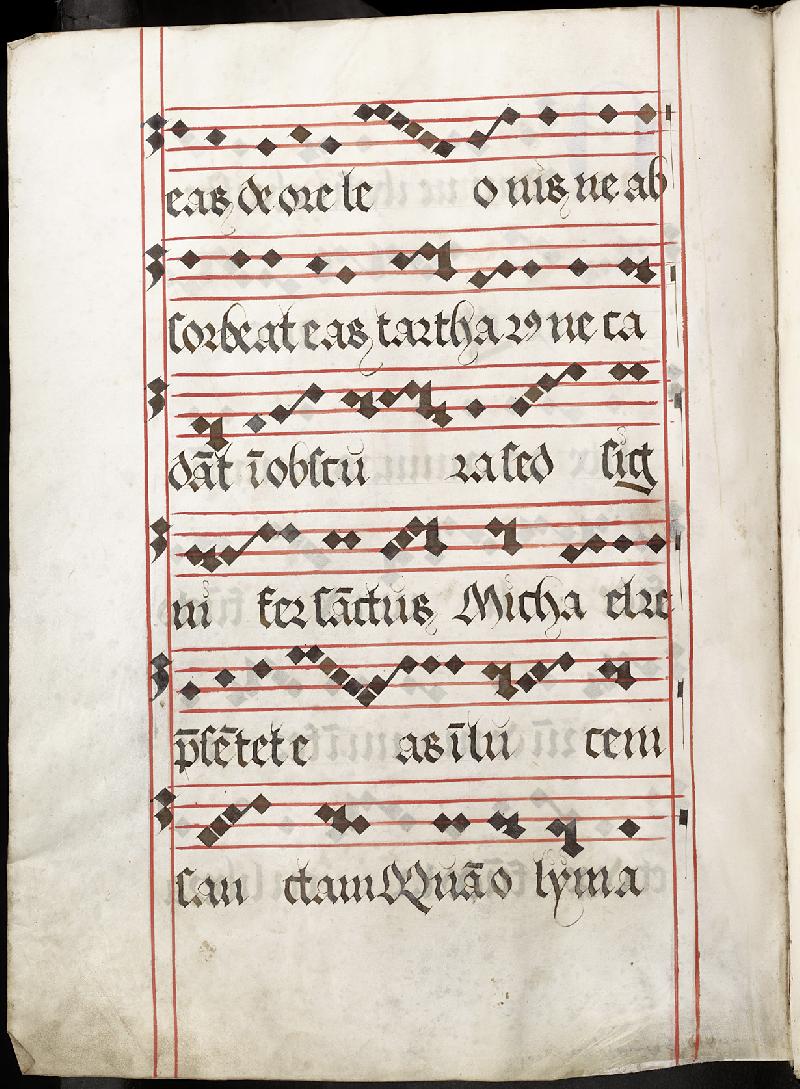 eas de ore le o nis ne ab
sorbeat eas tartharꝰ ne ca
dãt ĩ obscu ra sed sig
ni fer sãctus Micha el re
p̃sẽtet e as ĩ lu cem
san ctam Quã o lym a